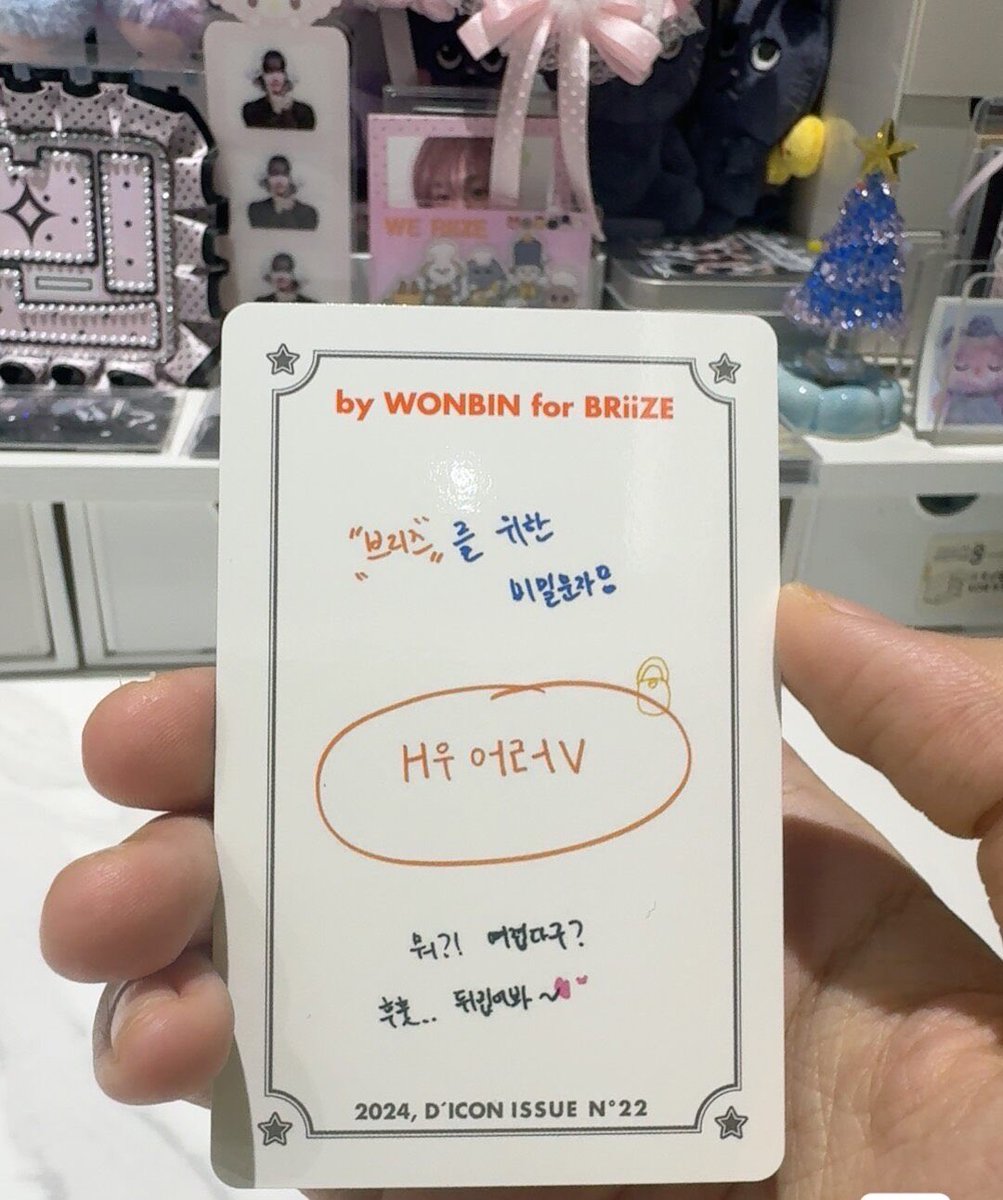 WE RIIZE
by WONBIN for BRiiZE
"브리즈"를 위한
비밀문자!
H우 어러V
뭐?! 어렵다구?
후훗.. 뒤집어봐~
2024, D´ICON ISSUE N°22